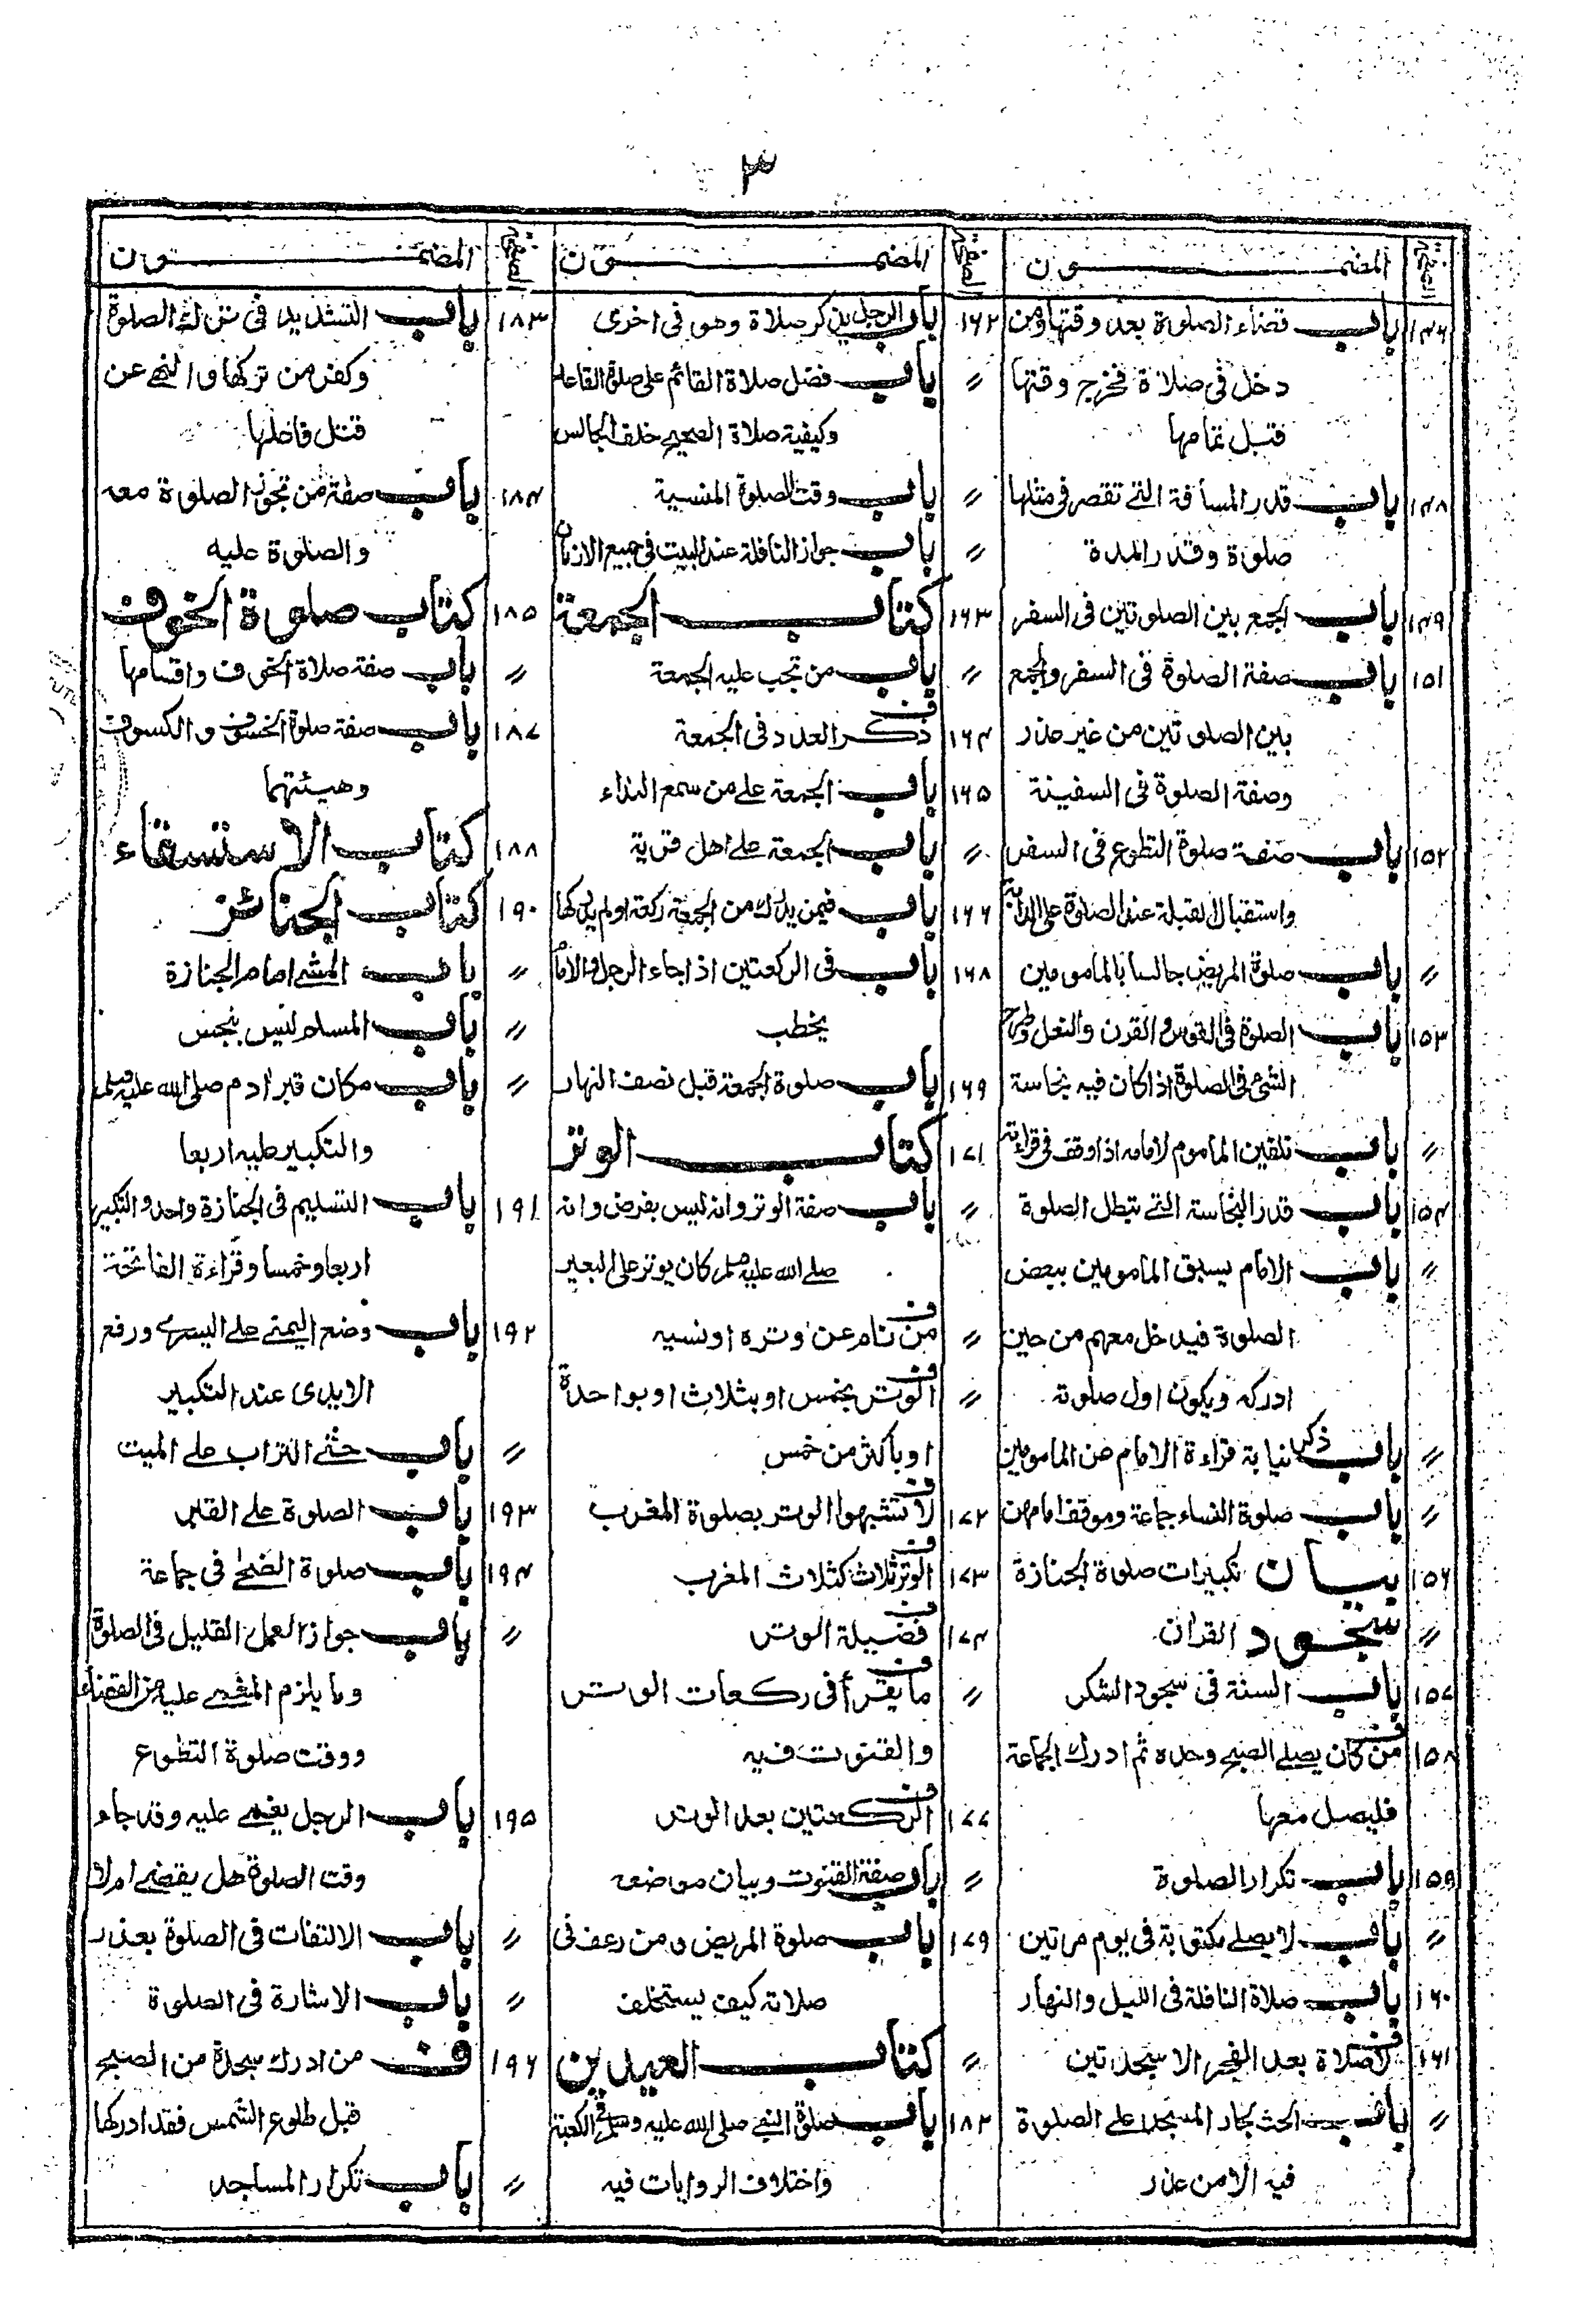 ۳
الصفحة المضمــــــون
۱۴۶ باب قضاء الصلوة بعد وقتها ومن
دخل فى صلاة فخرج وقتها
قبل تمامها
۱۴۸ باب قدر المسافة التى تقصر فى مثلها
صلوة وقدر المدة
۱۴۹ باب الجمع بين الصلوتين فى السفر
۱۵۱ باب صفة الصلوة فى السفر والجمع
بين الصلوتين من غير عذر
وصفة الصلوة فى السفينة
۱۵۲ باب صفة صلوة التطوع فى السفر
واستقبال القبلة عند الصلوة على الدابة
〃 باب صلوة المريض جالسا بالمامومين
۱۵۳ باب الصلوة فى القوس والقرن والنعل وطرح
الشئ فى الصلوة اذا كان فيه نجاسة
〃 باب تلقين الماموم لامامه اذا وقف فى قراءته
۱۵۴ باب قدر النجاسة التى تبطل الصلوة
〃 باب الامام يسبق المامومين ببعض
الصلوة فيدخل معهم من حين
ادركه ويكون اول صلوته
〃 باب ذكر نيابة قراءة الامام عن المامومين
〃 باب صلوة النساء جماعة وموقف امامهن
۱۵۶ بيان تكبيرات صلوة الجنازة
〃 سجود القران
۱۵۷ باب السنة فى سجود الشكر
۱۵۸ ف من كان يصلى الصبح وحده ثم ادرك الجماعة
فليصل معها
۱۵۹ باب تكرار الصلوة
〃 باب لا يصلى مكتوبة فى يوم مرتين
۱۶۰ باب صلاة النافلة فى الليل والنهار
۱۶۱ ف لا صلاة بعد الفجر الا سجدتين
〃 باب الحث لجار المسجد على الصلوة
فيه الا من عذر
الصفحة المضمــــــون
۱۶۲ باب الرجل يذكر صلاة وهو فى اخرى
〃 باب فضل صلاة القائم على صلوة القاعد
وكيفية صلاة الصحيح خلف الجالس
〃 باب وقت الصلوة المنسية
〃 باب جواز النافلة عند البيت فى جميع الازمان
۱۶۳ كتاب الجمعة
〃 باب من تجب عليه الجمعة
۱۶۴ ف ذكر العدد فى الجمعة
۱۶۵ باب الجمعة على من سمع النداء
〃 باب الجمعة على اهل قرية
۱۶۶ باب فيمن يدرك من الجمعة ركعة او لم يدركها
۱۶۸ باب فى الركعتين اذا جاء الرجل والامام
يخطب
۱۶۹ باب صلوة الجمعة قبل نصف النهار
۱۷۱ كتاب الوتر
〃 باب صفة الوتر وانه ليس بفرض وانه
صلى الله عليه وسلم كان يوتر على البعير
〃 ف من نام عن وتره او نسيه
〃 ف الوتر بخمس او بثلاث او بواحدة
او باكثر من خمس
۱۷۲ ف لا تشبهوا الوتر بصلوة المغرب
۱۷۳ ف الوتر ثلاث كثلاث المغرب
۱۷۴ ف فضيلة الوتر
〃 ف ما يقرأ فى ركعات الوتر
والقنوت فيه
۱۷۷ ف الركعتين بعد الوتر
〃 باب صفة القنوت وبيان موضعه
۱۷۹ باب صلوة المريض ومن رعف فى
صلاته كيف يستخلف
〃 كتاب العيدين
۱۸۲ باب صلوة النبى صلى الله عليه وسلم فى الكعبة
واختلاف الروايات فيه
الصفحة المضمــــــون
۱۸۳ باب التشديد فى ترك الصلوة
وكفر من تركها والنهى عن
قتل فاعلها
۱۸۴ باب صفة من تجوز الصلوة معه
والصلوة عليه
۱۸۵ كتاب صلوة الخوف
〃 باب صفة صلاة الخوف واقسامها
۱۸۷ باب صفة صلوة الخسوف والكسوف
وهيئتهما
۱۸۸ كتاب الاستسقاء
۱۹۰ كتاب الجنائز
〃 باب المشى امام الجنازة
〃 باب المسلم ليس بنجس
〃 باب مكان قبر ادم صلى الله عليه وسلم
والتكبير عليه اربعا
۱۹۱ باب التسليم فى الجنازة واحد والتكبير
اربعا وخمسا وقراءة الفاتحة
۱۹۲ باب وضع اليمنى على اليسرى ورفع
الايدى عند التكبير
〃 باب حثى التراب على الميت
۱۹۳ باب الصلوة على القبر
۱۹۴ باب صلوة الضحى فى جماعة
〃 باب جواز العمل القليل فى الصلوة
وما يلزم المغمى عليه من القضاء
ووقت صلوة التطوع
۱۹۵ باب الرجل يغمى عليه وقد جاء
وقت الصلوة هل يقضى ام لا
〃 باب الالتفات فى الصلوة بعذر
〃 باب الاشارة فى الصلوة
۱۹۶ ف من ادرك سجدة من الصبح
قبل طلوع الشمس فقد ادركها
〃 باب تكرار المساجد